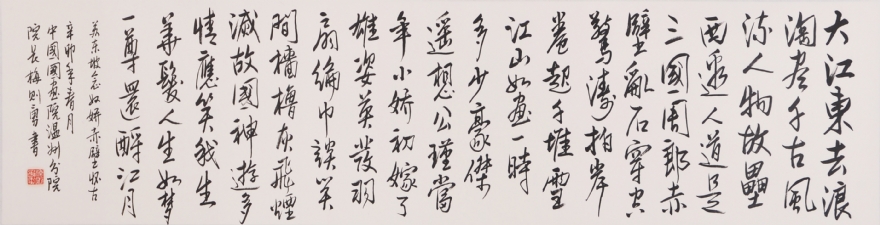 大江東去浪
淘盡千古風
流人物故壘
西邊人道是
三國周郎赤
壁亂石穿空
驚濤拍岸
卷起千堆雪
江山如畫一時
多少豪傑
遥想公瑾當
年小嬌初嫁了
雄姿英發羽
扇綸巾談笑
間檣櫓灰飛煙
滅故國神遊多
情應笑我生
華髮人生如梦
一尊還酹江月
蘇東坡念奴嬌赤壁懷古
辛卯年春月
中國國画院温州分院
院長梅則勇書